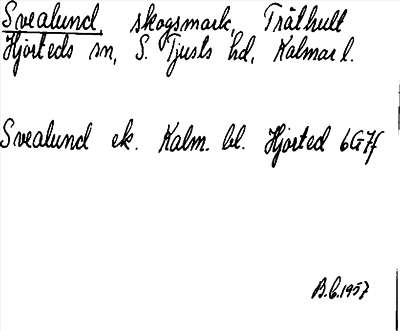 Svealund, skogsmark, Tråthult
Hjorteds sn, S. Tjusts hd, Kalmar l.
Svealund ek. Kalm. bl. Hjorted 6G7f
B.C. 1957